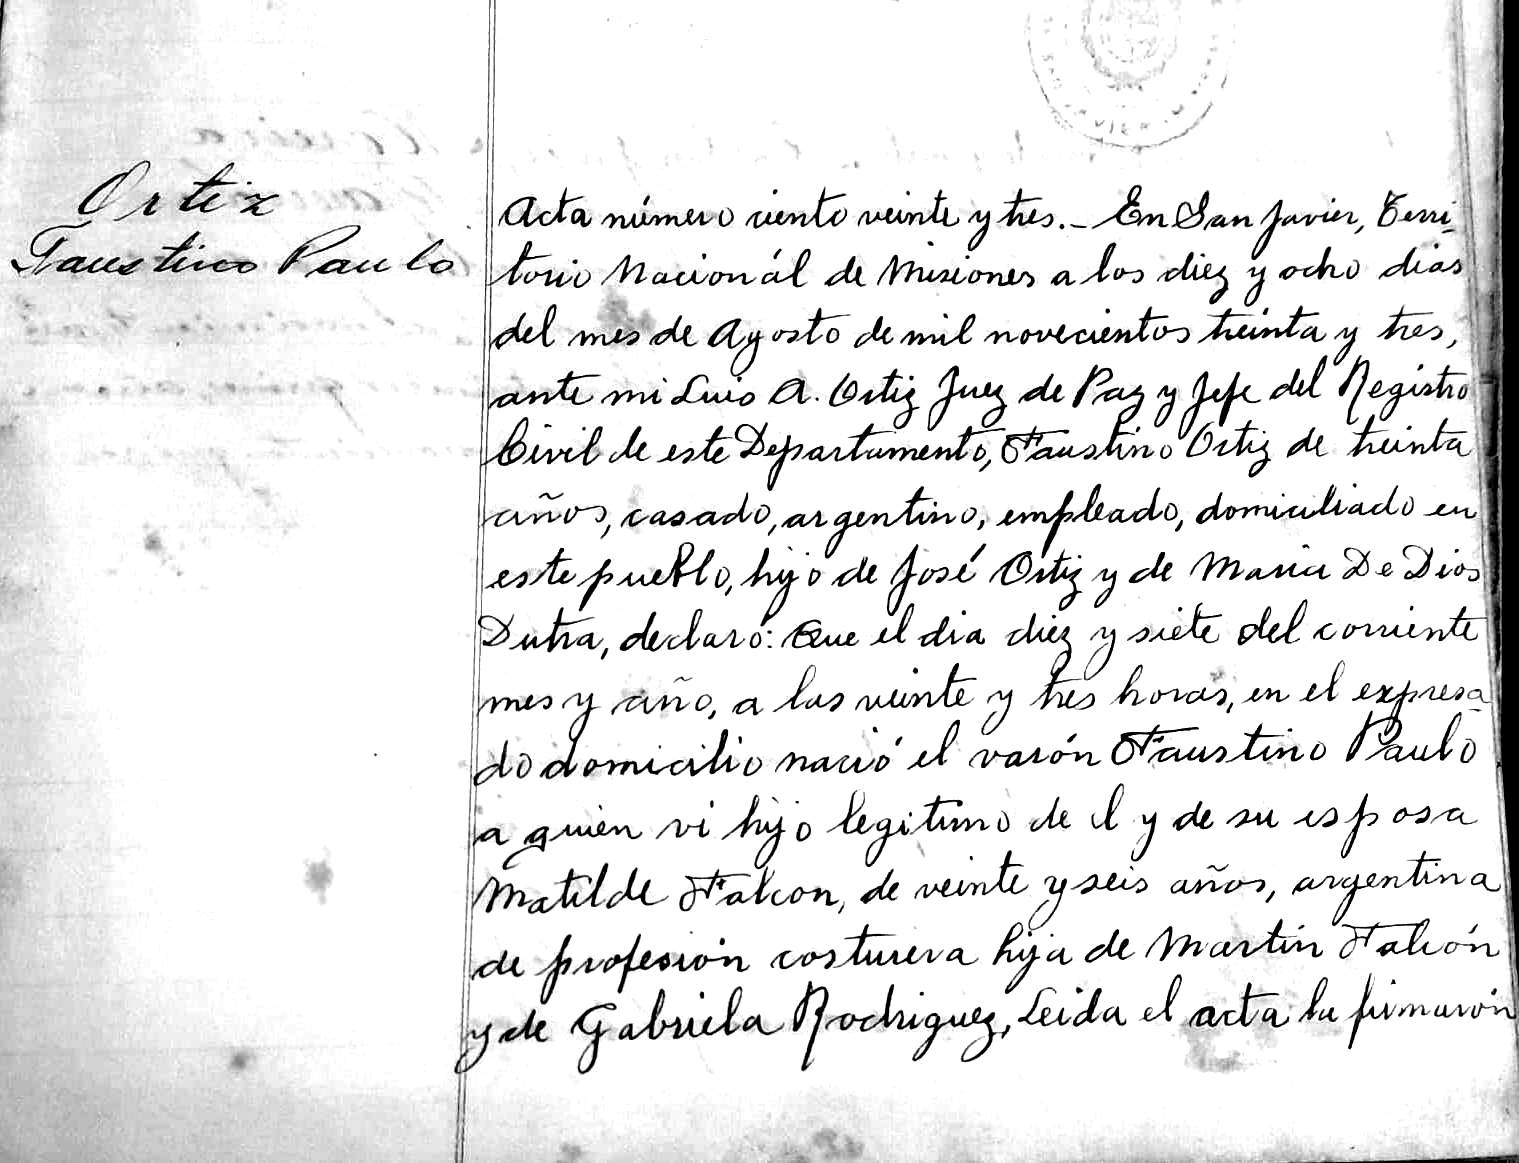 Ortiz
Faustino Paulo
Acta número ciento veinte y tres.- En San Javier, Terri-
torio Nacionál de Misiones a los diez y ocho dias
del mes de Agosto de mil novecientos treinta y tres,
ante mi Luis A. Ortiz Juez de Paz y Jefe del Registro
Civil de este Departamento, Faustino Ortiz de treinta
años, casado, argentino, empleado, domiciliado en
este pueblo, hijo de José Ortiz y de Maria De Dios
Dutra, declaró: Que el dia diez y siete del corriente
mes y año, a las veinte y tres horas, en el expresa-
do domicilio nació el varón Faustino Paulo
a quien vi hijo legitimo de el y de su esposa
Matilde Falcon, de veinte y seis años, argentina
de profesión costurera hija de Martín Falcón
y de Gabriela Rodriguez, Leida el acta la firmarón